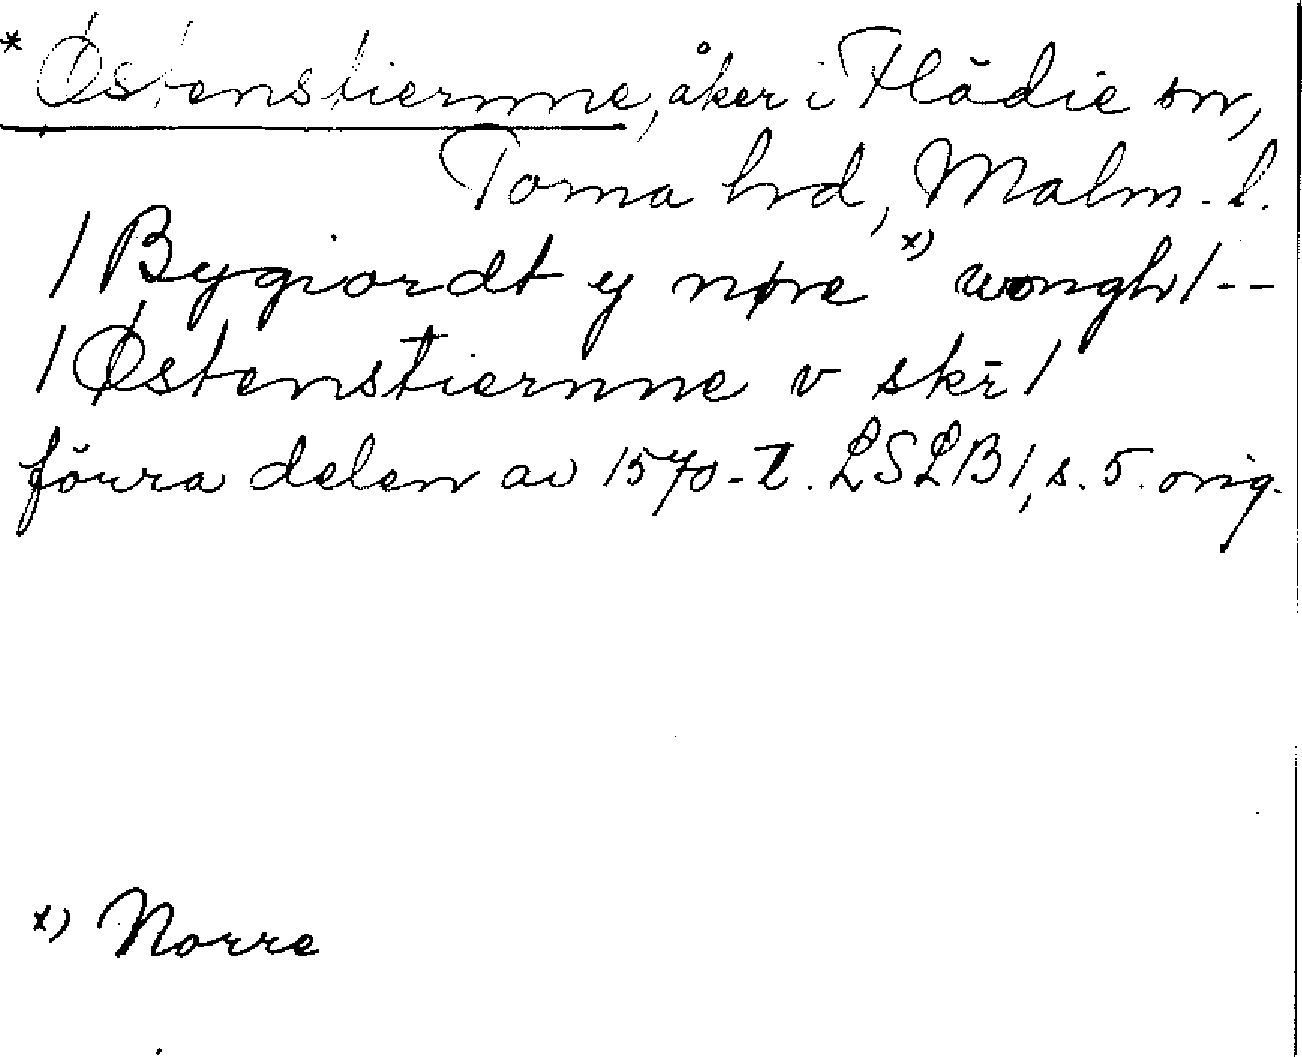 * Østenstiernne, åker i Flädie sn,
Torna hrd, Malm. l.
/ Bygiordt y nøre x) wongh / --
/ Østenstiernne v skr /
förra delen av 1570-t. LSLB 1, s. 5. orig.
x) Norre